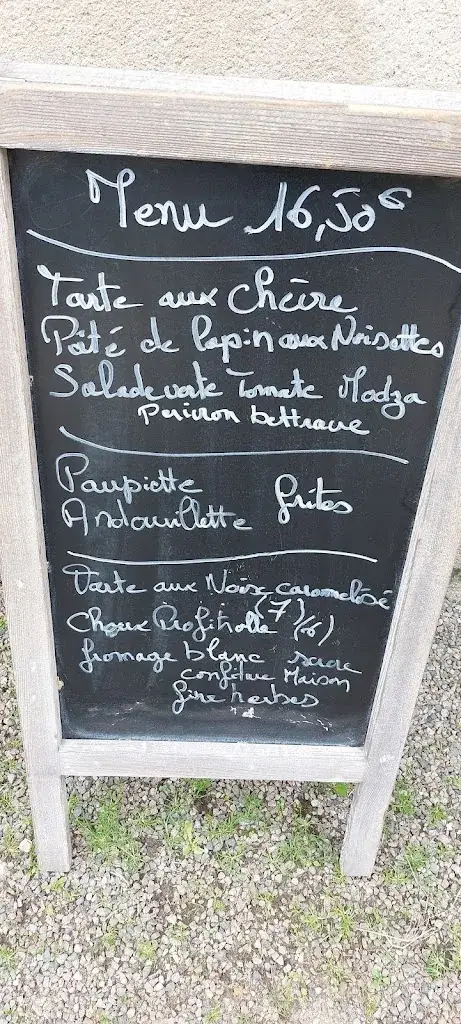 Menu 16,50€
Tarte aux chèvre
Pâté de lapin aux Noisettes
Salade verte Tomate Modza
Poivron bettrave
Paupiette
Andouillette frites
Tarte aux Noix caramelisé
Choux Profitrolle (7) (6)
fromage blanc sucre
confiture Maison
fine herbes